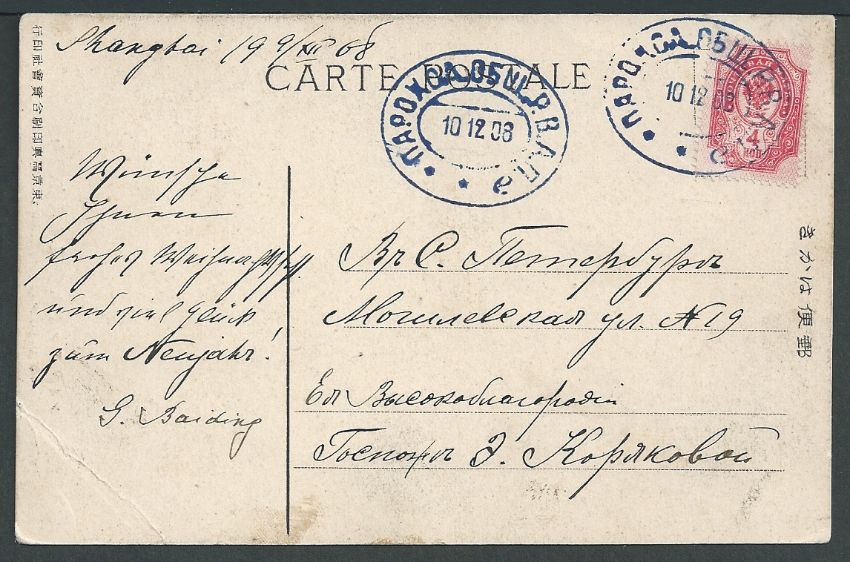 Shanghai 19 9/XII 08
CARTE POSTALE
ПАРОХ.С.Д. ОБЩ. Р.В.А.П. а
10 12 08
ПАРОХ.С.Д. ОБЩ.
10 12 08
4
КОП
Wünsche
Ihnen
frohes Weihnacht
und viel Glück
zum Neujahr!
G. Baiding
Въ С. Петербургъ
Могилевская ул. № 19
Ея Высокоблагородiи
Госпожѣ Э. Коряковой
きかは便郵